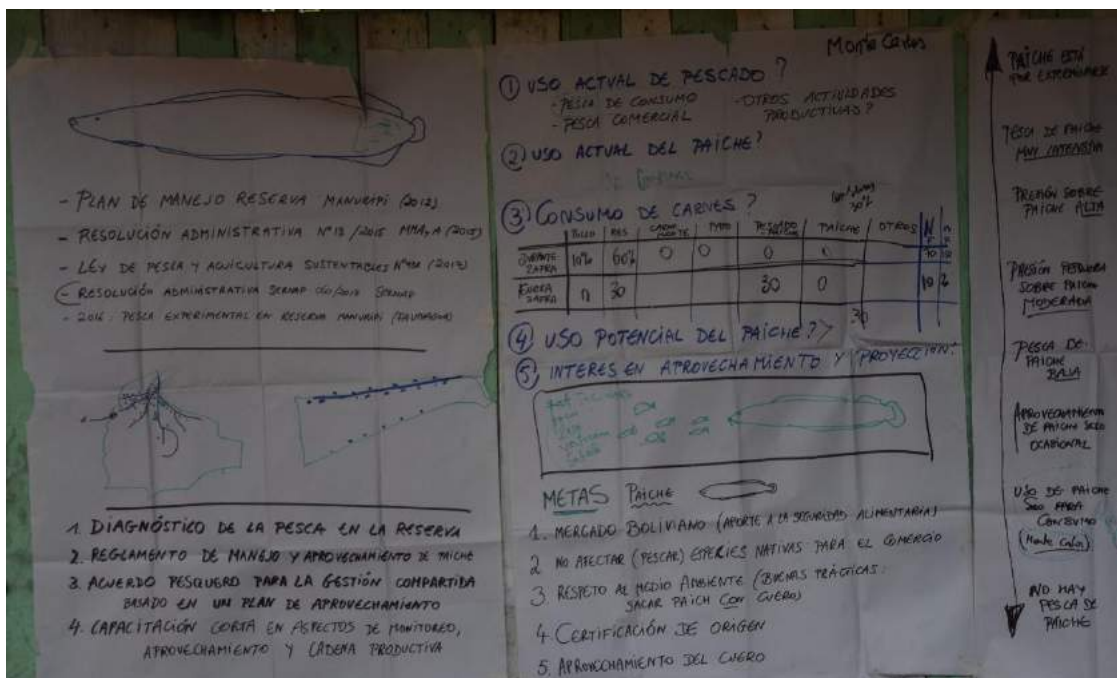 - PLAN DE MANEJO RESERVA MANURIPI (2012)
- RESOLUCIÓN ADMINISTRATIVA Nº13 /2015 MMAyA (2015)
- LEY DE PESCA Y
SUSTENTABLES
- RESOLUCIÓN ADMINISTRATIVA SERNAP
- 2016: PESCA EXPERIMENTAL EN RESERVA MANURIPI
1. DIAGNÓSTICO DE LA PESCA EN LA RESERVA
2. REGLAMENTO DE MANEJO Y APROVECHAMIENTO DE PAICHE
3. ACUERDO PESQUERO PARA LA GESTIÓN COMPARTIDA
BASADO EN UN PLAN DE APROVECHAMIENTO
4. CAPACITACIÓN CORTA EN ASPECTOS DE MONITOREO,
APROVECHAMIENTO Y CADENA PRODUCTIVA
Monte Carlos
① USO ACTUAL DE PESCADO?
- PESCA DE CONSUMO - OTRAS ACTIVIDADES
- PESCA COMERCIAL PRODUCTIVAS?
② USO ACTUAL DEL PAICHE?
③ CONSUMO DE CARNES?
POLLO RES CARNE MONTE PATO PESCADO PAICHE OTROS N
DURANTE ZAFRA 10% 60% 0 0 0 0 70
FUERA ZAFRA 0 30 30 0 10
30
④ USO POTENCIAL DEL PAICHE?
⑤ INTERES EN APROVECHAMIENTO Y PROYECCIÓN?
METAS PAICHE
1. MERCADO BOLIVIANO (APORTE A LA SEGURIDAD ALIMENTARIA)
2 NO AFECTAR (PESCAR) ESPECIES NATIVAS PARA EL COMERCIO
3. RESPETO AL MEDIO AMBIENTE (BUENAS PRÁCTICAS:
SACAR PAICH CON CUERO)
4 CERTIFICACIÓN DE ORIGEN
5. APROVECHAMIENTO DEL CUERO
PAICHE ESTÁ
POR EXTERMINARSE
PESCA DE PAICHE
MUY INTENSIVA
PRESIÓN SOBRE
PAICHE ALTA
PRESIÓN PESQUERA
SOBRE PAICHE
MODERADA
PESCA DE
PAICHE
BAJA
APROVECHAMIENTO
DE PAICHE SOLO
OCASIONAL
USO DE PAICHE
SOLO PARA
CONSUMO
(Monte Carlos)
NO HAY
PESCA DE
PAICHE